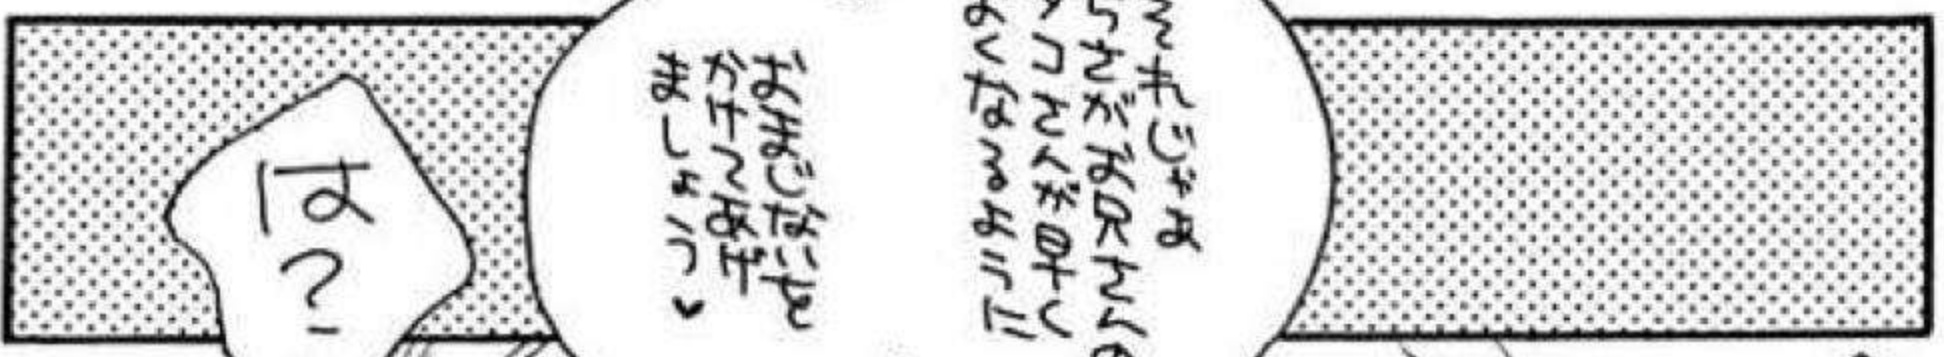 それじゃあ
がお兄さんの
早く
よくなるように
おまじないを
かけてあげ
ましょう♥
は?